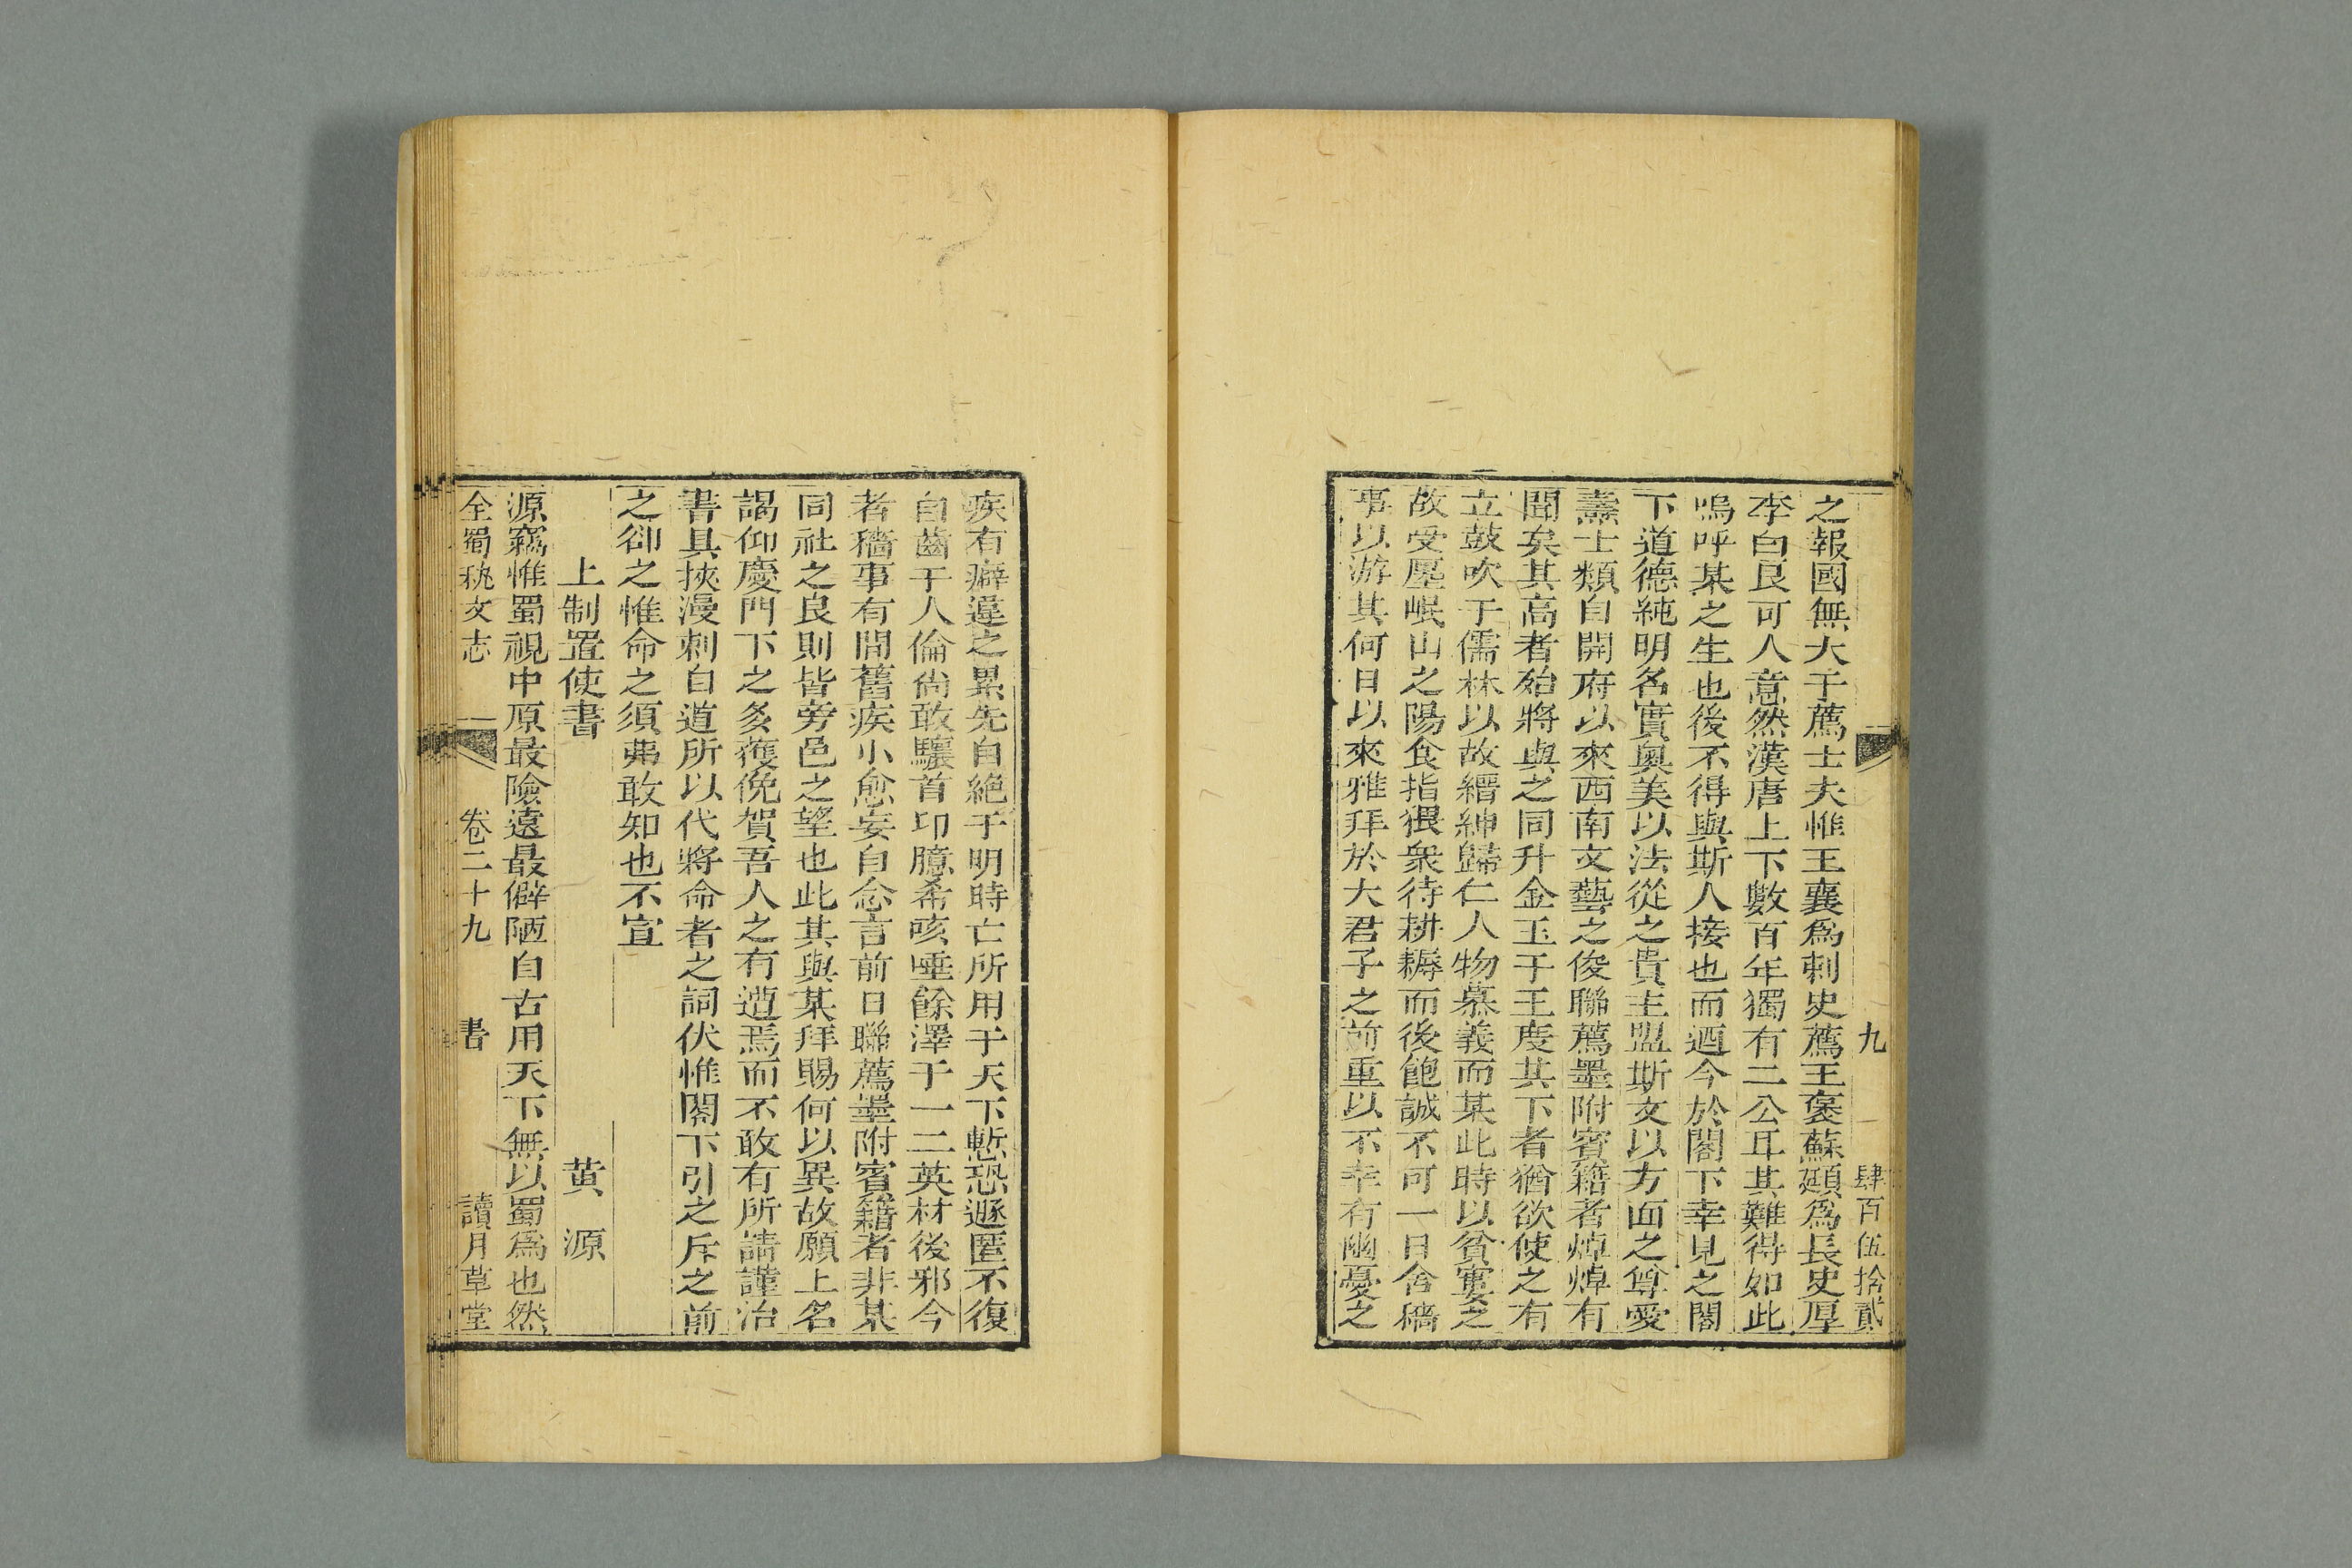 九 肆百伍拾貳
之報國無大于薦士夫惟王襄爲刺史薦王褒蘇頲爲長史厚
李白良可人意然漢唐上下數百年獨有二公耳其難得如此
嗚呼某之生也後不得與斯人接也而迺今於閤下幸見之閤
下道德純明名實奧美以法從之貴主盟斯文以方面之尊愛
燾士類自開府以來西南文藝之俊聯薦墨附賓籍者焯焯有
聞矣其高者殆將與之同升金玉于王度其下者猶欲使之有
立鼓吹于儒林以故縉紳歸仁人物慕義而某此時以貧窶之
故受廛岷山之陽食指猥衆待耕耨而後飽誠不可一日舍穡
事以游其何日以來雅拜於大君子之前重以不幸有幽憂之
疾有癖違之累先自絕于明時亡所用于天下慙恐遯匿不復
自齒于人倫尙敢驤首卬臆希咳唾餘澤于一二英材後邪今
者穡事有間舊疾小愈妄自念言前日聯薦墨附賓籍者非某
同社之良則皆旁邑之望也此其與某拜賜何以異故願上名
謁仰慶門下之多獲俛賀吾人之有遭焉而不敢有所請謹治
書具挾漫刺自道所以代將命者之詞伏惟閤下引之斥之前
之卻之惟命之須弗敢知也不宣
上制置使書 黄源
源竊惟蜀視中原最險遠最僻陋自古用天下無以蜀爲也然
全蜀秇文志 卷二十九 書 讀月草堂